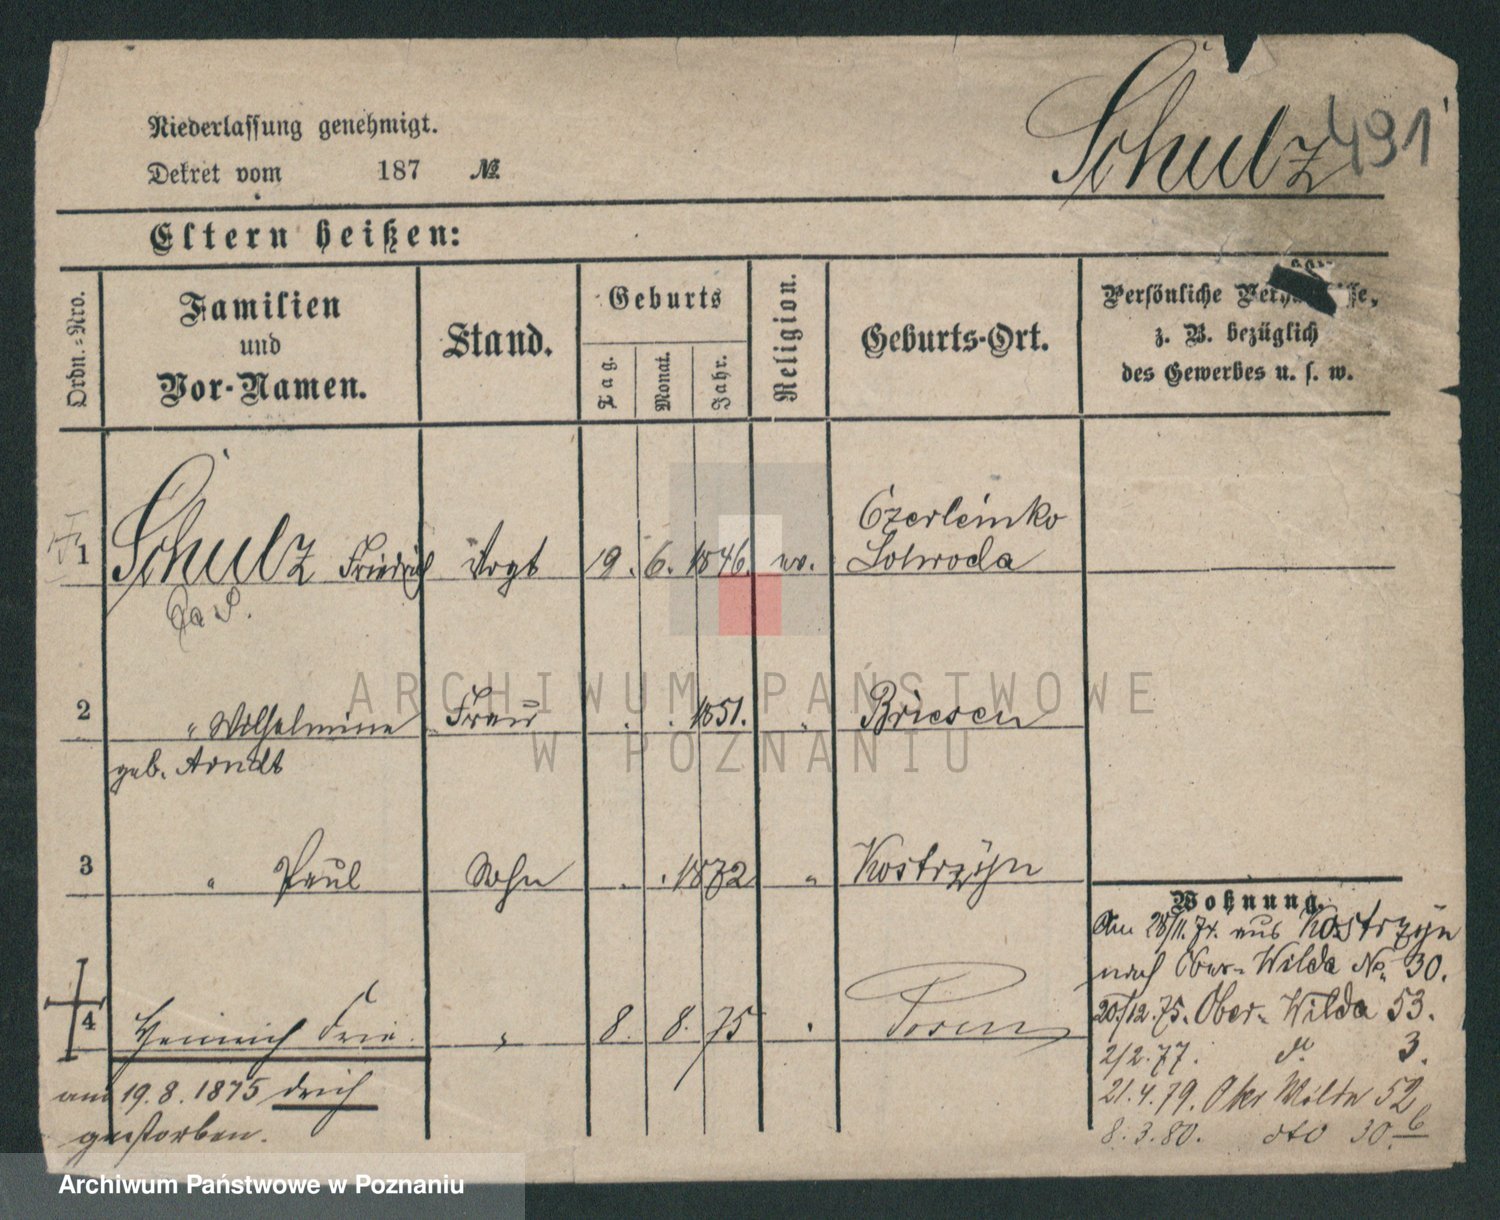 Niederlassung genehmigt.
Dekret vom 187 №
Schulz 491
Eltern heißen:
Ordn.-Nro.
Familien
und
Vor-Namen.
Stand.
Geburts
Tag.
Monat.
Jahr.
Religion.
Geburts-Ort.
Persönliche
z. B. bezüglich
des Gewerbes u. s. w.
1 Schulz Friedrich Vogt 19. 6. 1846. ev. Czerleinko
Schroda
2 " Wilhelmine Frau . . 1851. " Briesen
geb. Arndt
3 " Paul Sohn . . 1872 " Kostrzyn
4 Heinrich Frie " 8. 8. 75 . Posen
am 19.8.1875 drich
gestorben.
Wohnung.
Am 28/11. 74. aus Kostrzyn
nach Ober-Wilda No. 30.
20/12. 75. Ober-Wilda 53.
2/2. 77. do 3.
21. 4. 79. Ober Wilda 52
8. 3. 80. dto 30. b
ARCHIWUM PAŃSTWOWE
W POZNANIU
Archiwum Państwowe w Poznaniu